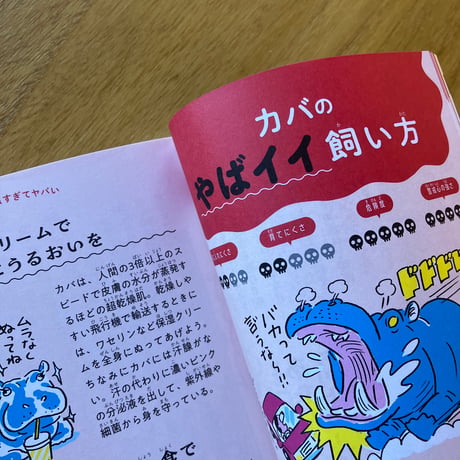 カバの
やばイイ飼い方
育てにくさ
危険度
警戒心の強さ
ドドドド
バカって
言うな〜!!
すぎてヤバい
リームで
うるおいを
カバは、人間の3倍以上のス
ピードで皮膚の水分が蒸発す
るほどの超乾燥肌。乾燥しや
すい飛行機で輸送するときに
は、ワセリンなど保湿クリー
ムを全身にぬってあげよう。
ちなみにカバには汗腺がな
く、汗の代わりに濃いピンク
の分泌液を出して、紫外線や
細菌から身を守っている。
ムラなく
ぬってね
で